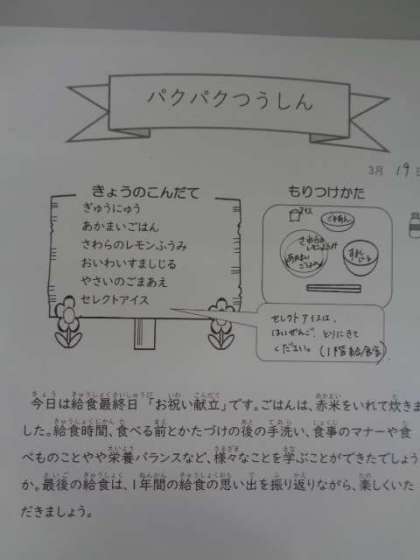 パクパクつうしん
3月 19
きょうのこんだて
ぎゅうにゅう
あかまいごはん
さわらのレモンふうみ
おいわいすましじる
やさいのごまあえ
セレクトアイス
もりつけかた
アイス
ごまあえ
さわらの
レモンふうみ
あかまい
ごはん
すまし
じる
セレクトアイスは、
はいぜんご、とりにきて
ください。(1階給食室)
今日は給食最終日「お祝い献立」です。ごはんは、赤米をいれて炊きま
した。給食時間、食べる前とかたづけの後の手洗い、食事のマナーや食
べもののことやや栄養バランスなど、様々なことを学ぶことができたでしょう
か。最後の給食は、1年間の給食の思い出を振り返りながら、楽しくいた
だきましょう。